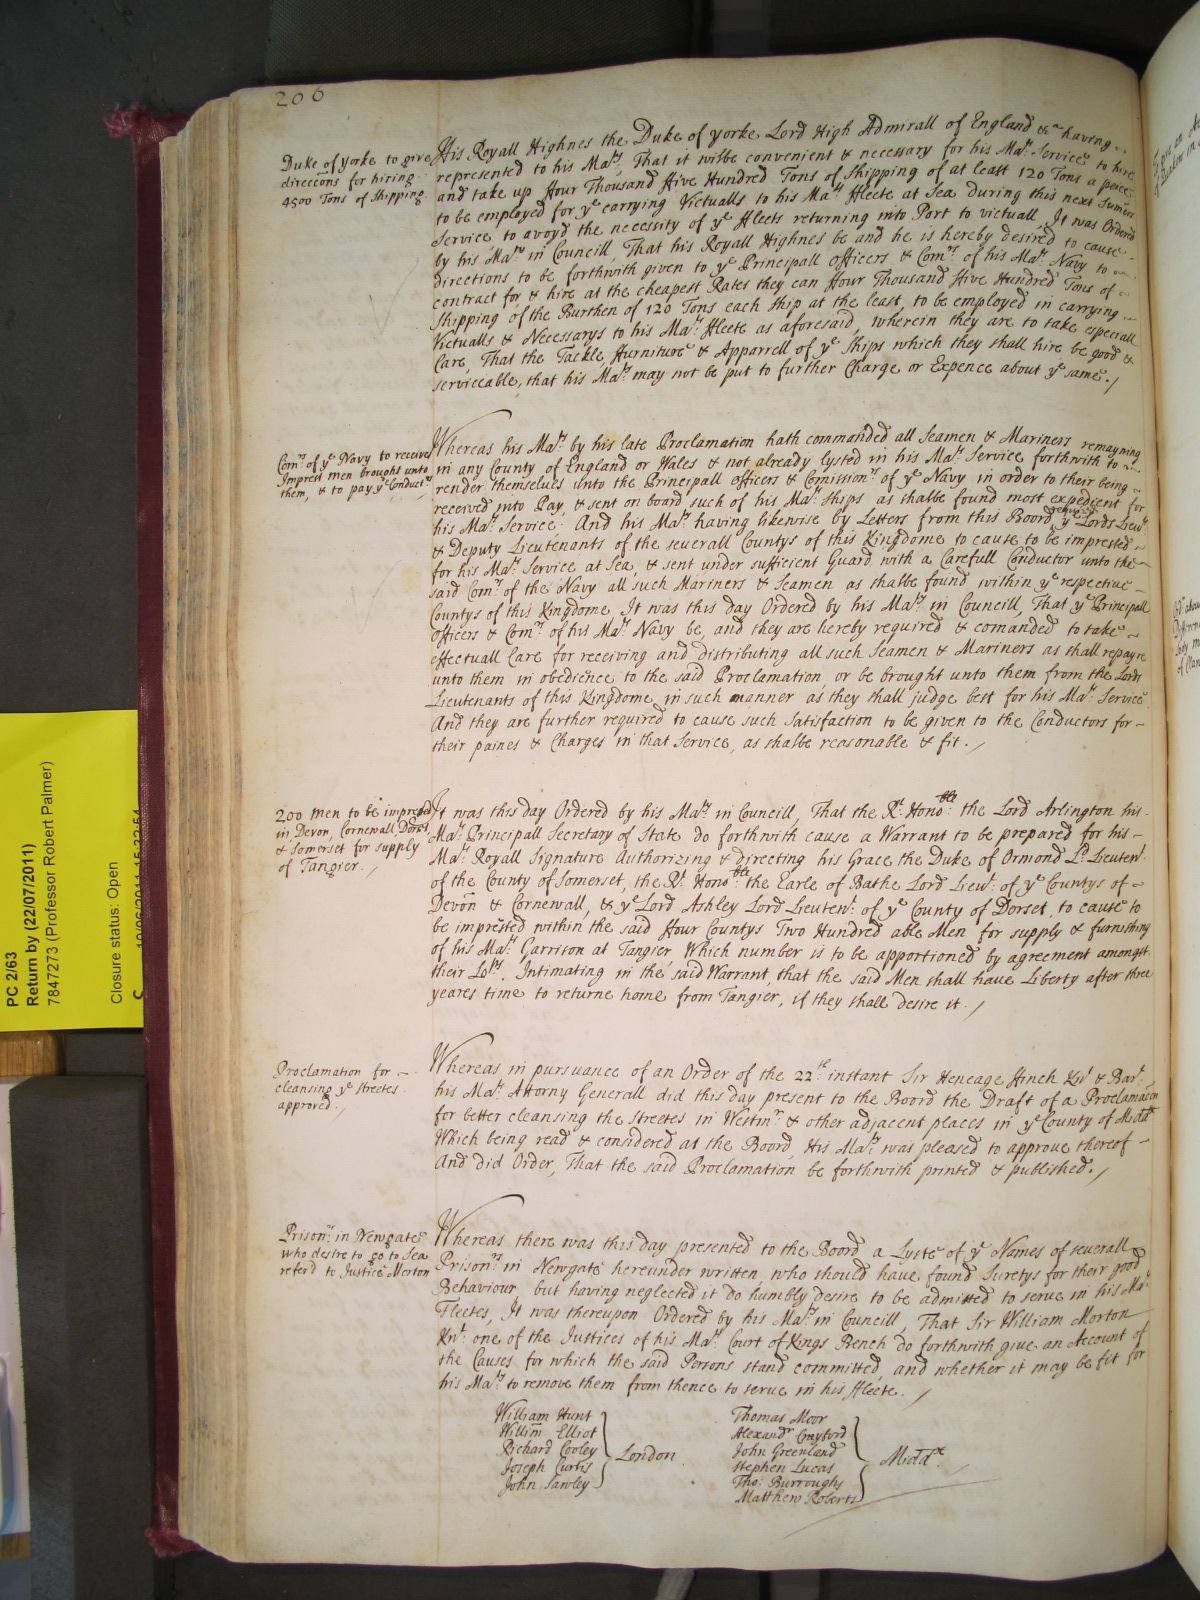 206
Duke of yorke to give
direccons for hiring
4500 Tons of Shipping
His Royall Highnes the Duke of yorke Lord High Admirall of England &ca having
represented to his Maty, That it wilbe convenient & necessary for his Mats Service to hire
and take up ffour Thousand ffive Hundred Tons of Shipping of at least 120 Tons a peece
to be employed for ye carrying Victualls to his Mats ffleete at Sea during this next Sumers
Service, to avoyd the necessity of ye ffleets returning into Port to victuall, It was Ordered
by his Maty in Councill, That his Royall Highnes be and he is hereby desired to cause
directions to be forthwith given to ye Principall Officers & Comrs of his Mats Navy to
contract for & hire at the cheapest Rates they can ffour Thousand ffive Hundred Tons of
Shipping of the Burthen of 120 Tons each Ship at the least, to be employed in carrying
Victualls & Necessarys to his Mats ffleete as aforesaid, wherein they are to take especiall
Care, That the Tackle, ffurniture & Apparrell of ye Ships which they shall hire be good &
serviceable, that his Maty may not be put to further Charge or Expence about ye same./
Comrs of ye Navy to receive
Imprest men brought unto
them, & to pay ye Conductrs
Whereas his Maty by his late Proclamation hath commanded all Seamen & Mariners remayning
in any County of England or Wales & not already lysted in his Mats Service forthwith to
render themselves unto the Principall Officers & Comissionrs of ye Navy in order to their being
received into Pay, & sent on board such of his Mats Ships as shalbe found most expedient for
his Mats Service. And his Maty having likewise by Letters from this Board ye Lords Lieuts
& Deputy Lieutenants of the severall Countys of this Kingdome to cause to be imprested
for his Mats Service at Sea, & sent under sufficient Guard with a Carefull Conductor unto the
said Comrs of the Navy all such Mariners & Seamen as shalbe found within ye respective
Countys of this Kingdome It was this day Ordered by his Maty in Councill, That ye Principall
Officers & Comrs of his Mats Navy be, and they are hereby required & comanded to take
effectuall Care for receiving and distributing all such Seamen & Mariners as shall repayre
unto them in obedience to the said Proclamation, or be brought unto them from the Lords
Lieutenants of this Kingdome in such manner as they shall judge best for his Mats Service
And they are further required to cause such Satisfaction to be given to the Conductors for
their paines & Charges in that Service, as shalbe reasonable & fit./
200 men to be imprested
in Devon, Cornewall, Dorset
& Somerset for supply
of Tangier./
It was this day Ordered by his Maty in Councill, That the Rt Honoble the Lord Arlington his
Mats Principall Secretary of State do forthwith cause a Warrant to be prepared for his
Mats Royall Signature Authorizing & directing his Grace the Duke of Ormond Ld Lieutent
of the County of Somerset, the Rt Honoble the Earle of Bathe Lord Lieut of ye Countys of
Devon & Cornewall, & ye Lord Ashley Lord Lieutent of ye County of Dorset, to cause to
be imprested within the said ffour Countys Two Hundred able Men for supply & furnishing
of his Mats Garrison at Tangier Which number is to be apportioned by agreement amongst
their Lopps. Intimating in the said Warrant, that the said Men shall have Liberty after three
yeares time to returne home from Tangier, if they shall desire it./
Proclamation for
cleansing ye Streetes
approved./
Whereas in pursuance of an Order of the 22th instant Sir Heneage ffinch Knt & Bart
his Mats Attorny Generall did this day present to the Board the Draft of a Proclamacon
for better cleansing the Streetes in Westmr & other adjacent places in ye County of Middx
Which being read & considered at the Board, His Maty was pleased to approve thereof
And did Order, That the said Proclamation be forthwith printed & published./
Prisonrs in Newgate
who desire to go to Sea
referd to Justice Morton
Whereas there was this day presented to the Board a Lyste of ye Names of severall
Prisonrs in Newgate hereunder written, who should have found Suretys for their good
Behaviour but having neglected it do humbly desire to be admitted to serve in his Mats
Fleetes, It was thereupon Ordered by his Maty in Councill, That Sir William Morton
Knt one of the Justices of his Mats Court of Kings Bench do forthwith give an Account of
the Causes for which the said Persons stand committed, and whether it may be fit for
his Maty to remove them from thence to serve in his ffleete./
William Hunt
Willim Elliot
Richard Cooley
Joseph Curtis
John Sawley
London
Thomas Moor
Alexandr Crayford
John Greenland
Stephen Lucas
Tho: Burroughs
Matthew Roberts
Middx
PC 2/63
Return by (22/07/2011)
7847273 (Professor Robert Palmer)
Closure status: Open